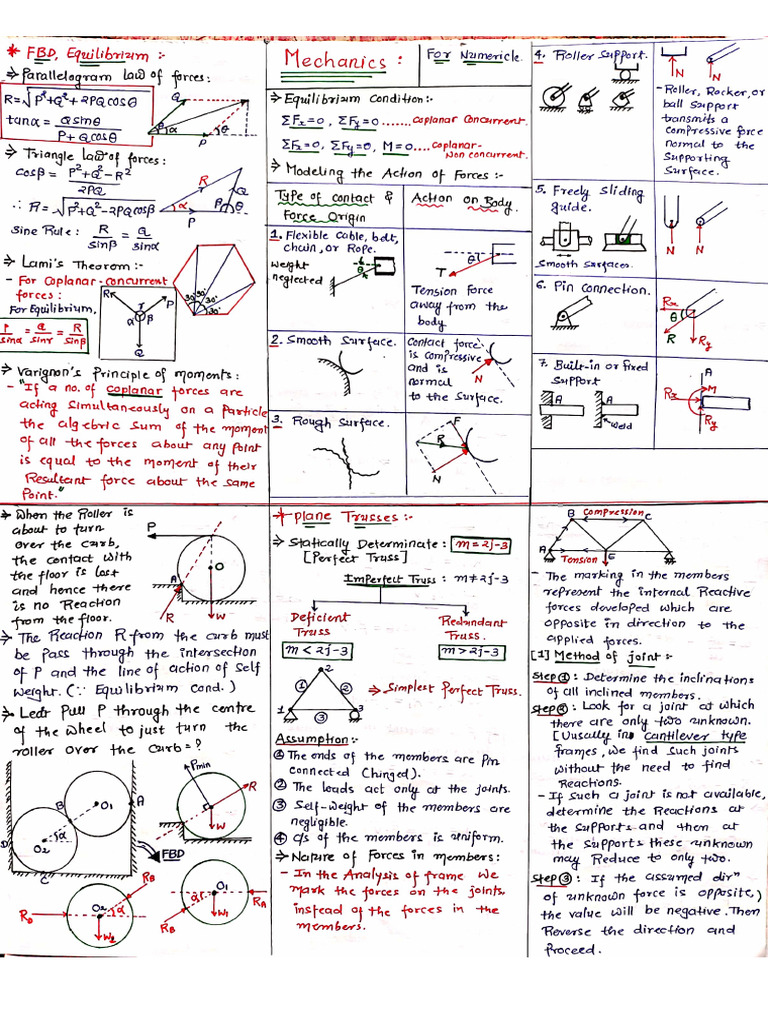 * FBD, Equilibrium :-
⇒ Parallelogram law of forces:
R=√P²+Q²+2PQ cosθ
tanα = Q sinθ
P+Q cosθ
Q
θ
α
P
θ
⇒ Triangle law of forces:-
cosβ = P²+Q²-R²
2PQ
∴ R=√P²+Q²-2PQcosβ
Sine Rule: R/sinβ = Q/sinα
R
Q
α
β
θ
P
⇒ Lami's Theorem:-
- For Coplanar-concurrent
forces:
For Equilibrium,
P/sinα = Q/sinr = R/sinβ
R
P
r
α
β
Q
30°
30°
30°
30°
⇒ Varignon's Principle of moments:
- "If a no. of coplanar forces are
acting simultaneously on a particle
the algebric sum of the moment
of all the forces about any point
is equal to the moment of their
Resultant force about the same
Point."
Mechanics:
For Numericle.
⇒ Equilibrium Condition:-
ΣFx=0, ΣFy=0 ....... Coplanar Concurrent.
ΣFx=0, ΣFy=0, M=0 .... Coplanar-
Non concurrent.
⇒ Modeling the Action of Forces:-
Type of contact &
Force Origin
Action on Body.
1. Flexible Cable, belt,
chain, or Rope.
Weight
neglected
θ
θ
T
Tension Force
away from the
body
2. Smooth Surface.
Contact force
is compressive
and is
normal
to the Surface.
N
3. Rough Surface.
F
R
N
4. Roller Support.
N
N
- Roller, Rocker, or
ball Support
transmits a
compressive force
normal to the
Supporting
Surface.
5. Freely Sliding
guide.
Smooth Surfaces.
N
N
6. Pin Connection.
Rx
θ
R
Ry
7. Built-in or fixed
Support
A
A
Weld
A
M
Rx
Ry
⇒ When the Roller is
about to turn
over the curb,
the contact with
the floor is lost
and hence there
is no Reaction
from the floor.
P
A
O
R
W
⇒ The Reaction R from the curb must
be pass through the intersection
of P and the line of action of Self
weight. (∵ Equilibrium Cond.)
⇒ Least Pull P through the centre
of the wheel to just turn the
roller over the curb = ?
Pmin
R
W
B
O1
A
D
α
O2
C
FBD
RD
O2
RB
α
W2
α
O1
RA
RB
W1
* Plane Trusses:-
⇒ Statically Determinate: m = 2j-3
[Perfect Truss]
Imperfect Truss: m ≠ 2j-3
Deficient
Truss
m < 2j-3
Redundant
Truss.
m > 2j-3
2
1
2
1
3
3
⇒ Simplest Perfect Truss.
Assumption:-
① The ends of the members are Pin
connected (hinged).
② The loads act only at the joints.
③ Self-weight of the members are
negligible.
④ C/s of the members is uniform.
⇒ Nature of Forces in members:
- In the Analysis of frame we
mark the forces on the joints,
instead of the forces in the
members.
B
Compression
C
A
Tension
E
- The marking in the members
represent the internal Reactive
forces developed which are
opposite in direction to the
applied forces.
[1] Method of joint:-
Step ①: Determine the inclinations
of all inclined members.
Step ②: Look for a joint at which
there are only two unknown.
[Uusally in Cantilever type
frames, we find such joints
without the need to find
Reactions.
- If such a joint is not available,
determine the Reactions at
the Supports and then at
the Supports these unknown
may Reduce to only two.
Step ③: If the assumed dirⁿ
of unknown force is opposite,)
the value will be negative. Then
Reverse the direction and
proceed.